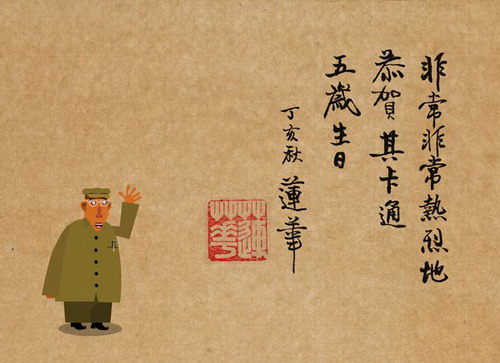 非常非常熱烈地
恭賀其卡通
五歲生日
丁亥秋 蓮華
蓮華